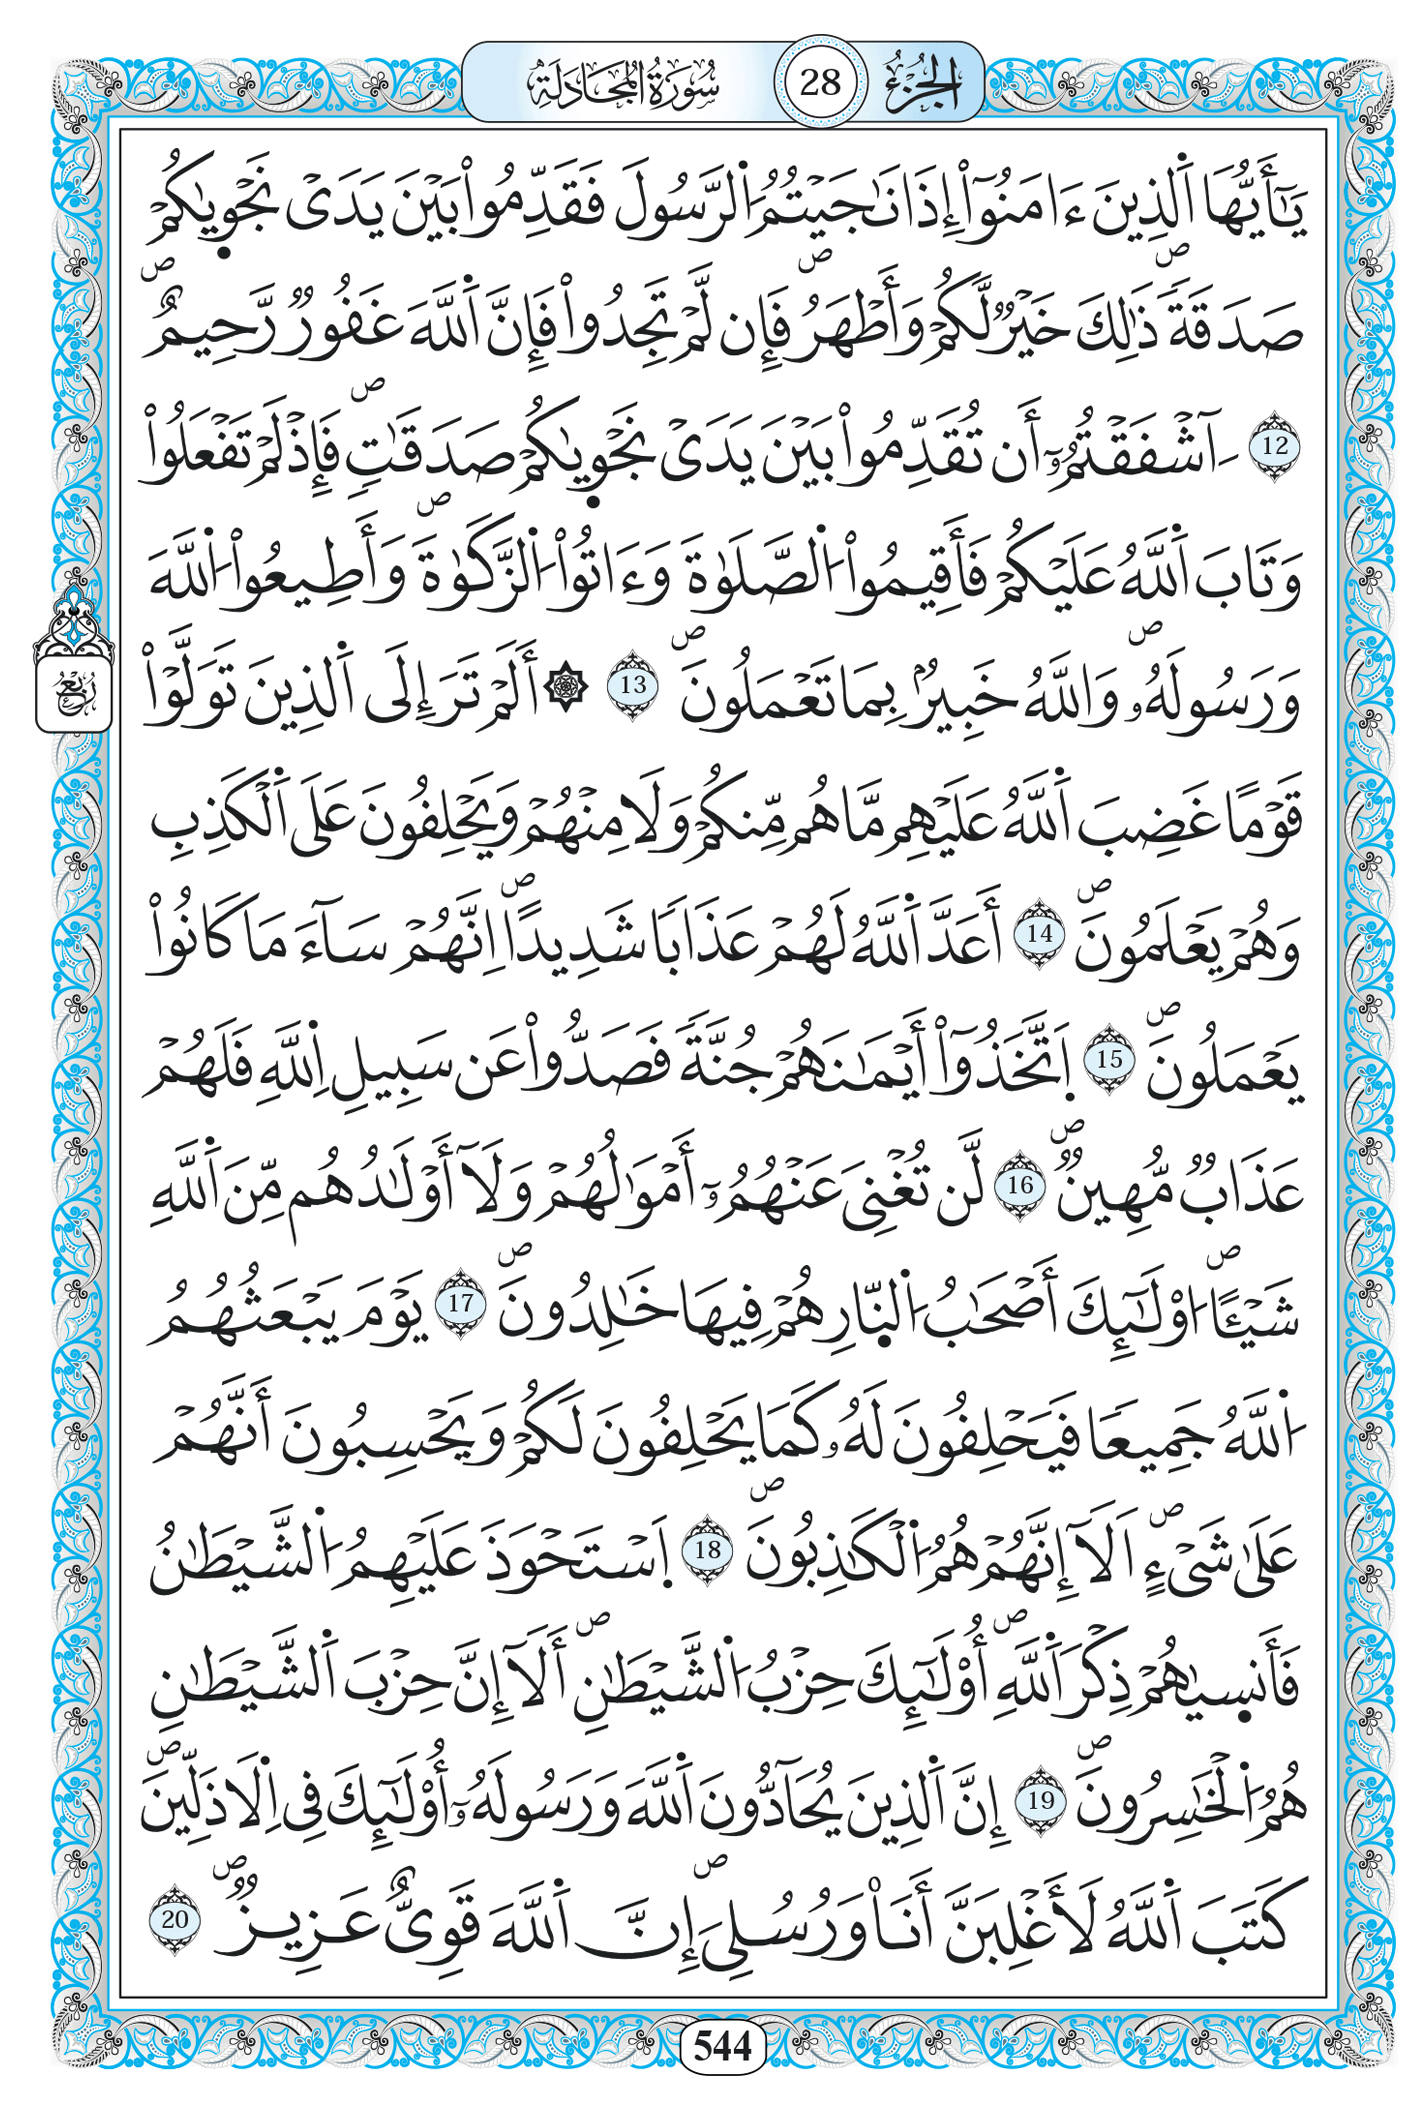 سُورَةُ المُجَادَلَة 28 الجُزْءُ
يَٰٓأَيُّهَا اَ۬لذِينَ ءَامَنُوٓاْ إِذَا نَٰجَيْتُمُ اُ۬لرَّسُولَ فَقَدِّمُواْ بَيْنَ يَدَيْ نَجْو۪يٰكُمْ
صَدَقَةٗۖ ذَٰلِكَ خَيْرٞ لَّكُمْ وَأَطْهَرُۖ فَإِن لَّمْ تَجِدُواْ فَإِنَّ اَ۬للَّهَ غَفُورٞ رَّحِيمٌۖ
12 ءَآشْفَقْتُمُۥٓ أَن تُقَدِّمُواْ بَيْنَ يَدَيْ نَجْو۪يٰكُمْ صَدَقَٰتٖۖ فَإِذْ لَمْ تَفْعَلُواْ
وَتَابَ اَ۬للَّهُ عَلَيْكُمْ فَأَقِيمُواْ اُ۬لصَّلَوٰةَ وَءَاتُواْ اُ۬لزَّكَوٰةَۖ وَأَطِيعُواْ اُ۬للَّهَ
وَرَسُولَهُۥۖ وَاللَّهُ خَبِيرُۢ بِمَا تَعْمَلُونَۖ 13 ۞ أَلَمْ تَرَ إِلَى اَ۬لذِينَ تَوَلَّوْاْ
رُبُعُ
قَوْماً غَضِبَ اَ۬للَّهُ عَلَيْهِم مَّا هُم مِّنكُمْ وَلَا مِنْهُمْ وَيَحْلِفُونَ عَلَى اَ۬لْكَذِبِ
وَهُمْ يَعْلَمُونَۖ 14 أَعَدَّ اَ۬للَّهُ لَهُمْ عَذَاباٗ شَدِيداًۖ اِنَّهُمْ سَآءَ مَا كَانُواْ
يَعْمَلُونَۖ 15 اَ۪تَّخَذُوٓاْ أَيْمَٰنَهُمْ جُنَّةٗ فَصَدُّواْ عَن سَبِيلِ اِ۬للَّهِ فَلَهُمْ
عَذَابٞ مُّهِينٞۖ 16 لَّن تُغْنِيَ عَنْهُمُۥٓ أَمْوَٰلُهُمْ وَلَآ أَوْلَٰدُهُم مِّنَ اَ۬للَّهِ
شَيْـٔاًۖ ا۟وْلَٰٓئِكَ أَصْحَٰبُ اُ۬لنّ۪ارِ هُمْ فِيهَا خَٰلِدُونَۖ 17 يَوْمَ يَبْعَثُهُمُ
اُ۬للَّهُ جَمِيعاٗ فَيَحْلِفُونَ لَهُۥ كَمَا يَحْلِفُونَ لَكُمْ وَيَحْسِبُونَ أَنَّهُمْ
عَلَىٰ شَےْءٍۖ اَلَآ إِنَّهُمْ هُمُ اُ۬لْكَٰذِبُونَۖ 18 اَ۪سْتَحْوَذَ عَلَيْهِمُ اُ۬لشَّيْطَٰنُ
فَأَنس۪يٰهُمْ ذِكْرَ اَ۬للَّهِۖ أُوْلَٰٓئِكَ حِزْبُ اُ۬لشَّيْطَٰنِۖ أَلَآ إِنَّ حِزْبَ اَ۬لشَّيْطَٰنِ
هُمُ اُ۬لْخَٰسِرُونَۖ 19 إِنَّ اَ۬لذِينَ يُحَآدُّونَ اَ۬للَّهَ وَرَسُولَهُۥٓ أُوْلَٰٓئِكَ فِي اِ۬لَاذَلِّينَۖ
كَتَبَ اَ۬للَّهُ لَأَغْلِبَنَّ أَنَا۠ وَرُسُلِيَۖ إِنَّ اَ۬للَّهَ قَوِيٌّ عَزِيزٞۖ 20
544